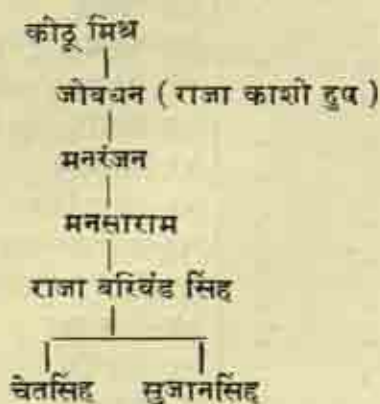 कीठू मिश्र
जोवधन ( राजा काशी हुए )
मनरंजन
मनसाराम
राजा बरिवंड सिंह
चेतसिंह सुजानसिंह